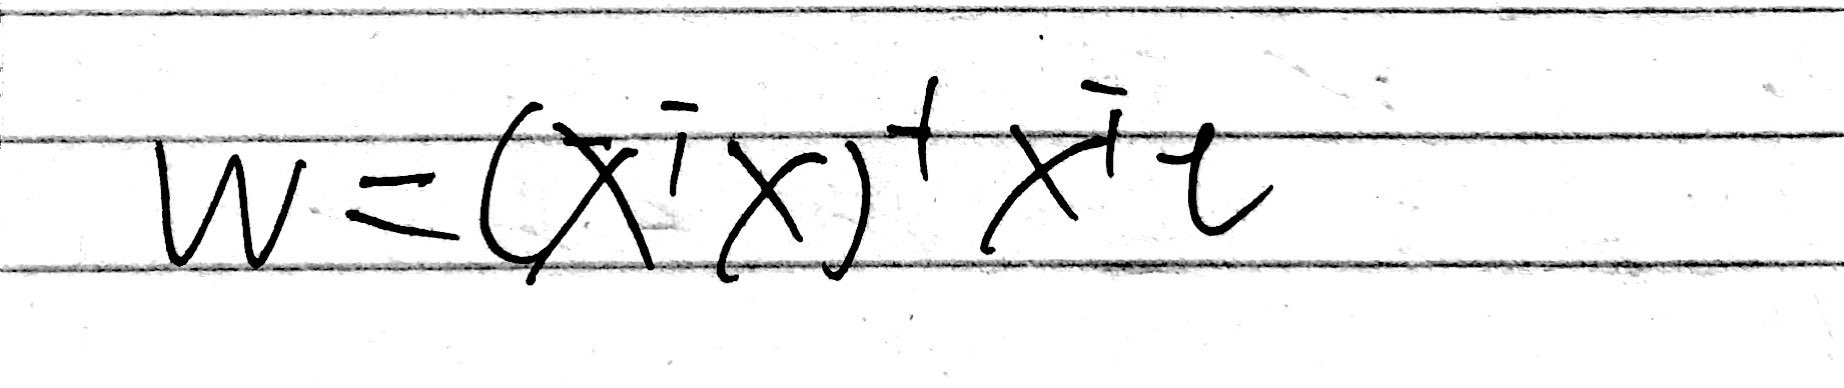 W = (X^T X)^+ X^T t